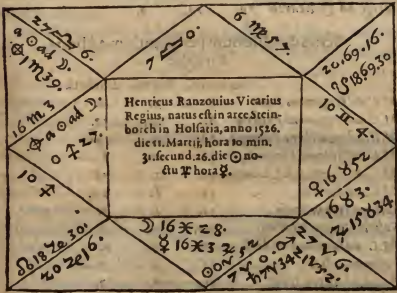 27 ♎ 6.
a ☉ ad ☽.
⊕ 1 ♏ 39.
7 ♎ 0.
6 ♍ 57.
20.69.16.
☋ 18 69.30
10 ♊ 4.
16 ♏ 3
⊕ a ☉ ad ☽.
0 ♐ 27.
10 ♐
Henricus Ranzouius Vicarius
Regius, natus est in arce Stein-
borch in Holsatia, anno 1526.
die 11. Martij, hora 10 min.
31. secund. 26. die ☉ no-
ctu ♆ hora ☿.
♀ 16 ♉ 52
16 ♉ 3.
♃ 15 ♉ 34
☊ 18 ♑ 30.
20 ♑ 16.
☽ 16 ♓ 28.
☿ 16 ♓ 3
27 ♈ 6.
7 ♈ 0.